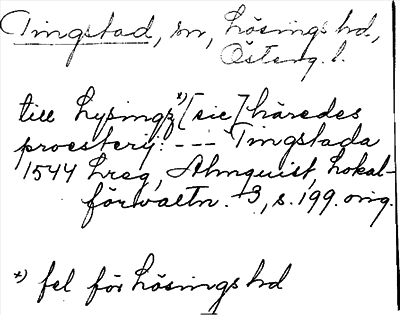 Tingstad, sn, Lösings hd,
Österg. l.
till Lysingz*) [sic] häredes
proesterij: --- Tingstada
1544 Lreg, Almquist, Lokal-
förvaltn. 3, s. 199. orig.
*) fel för Lösings hd